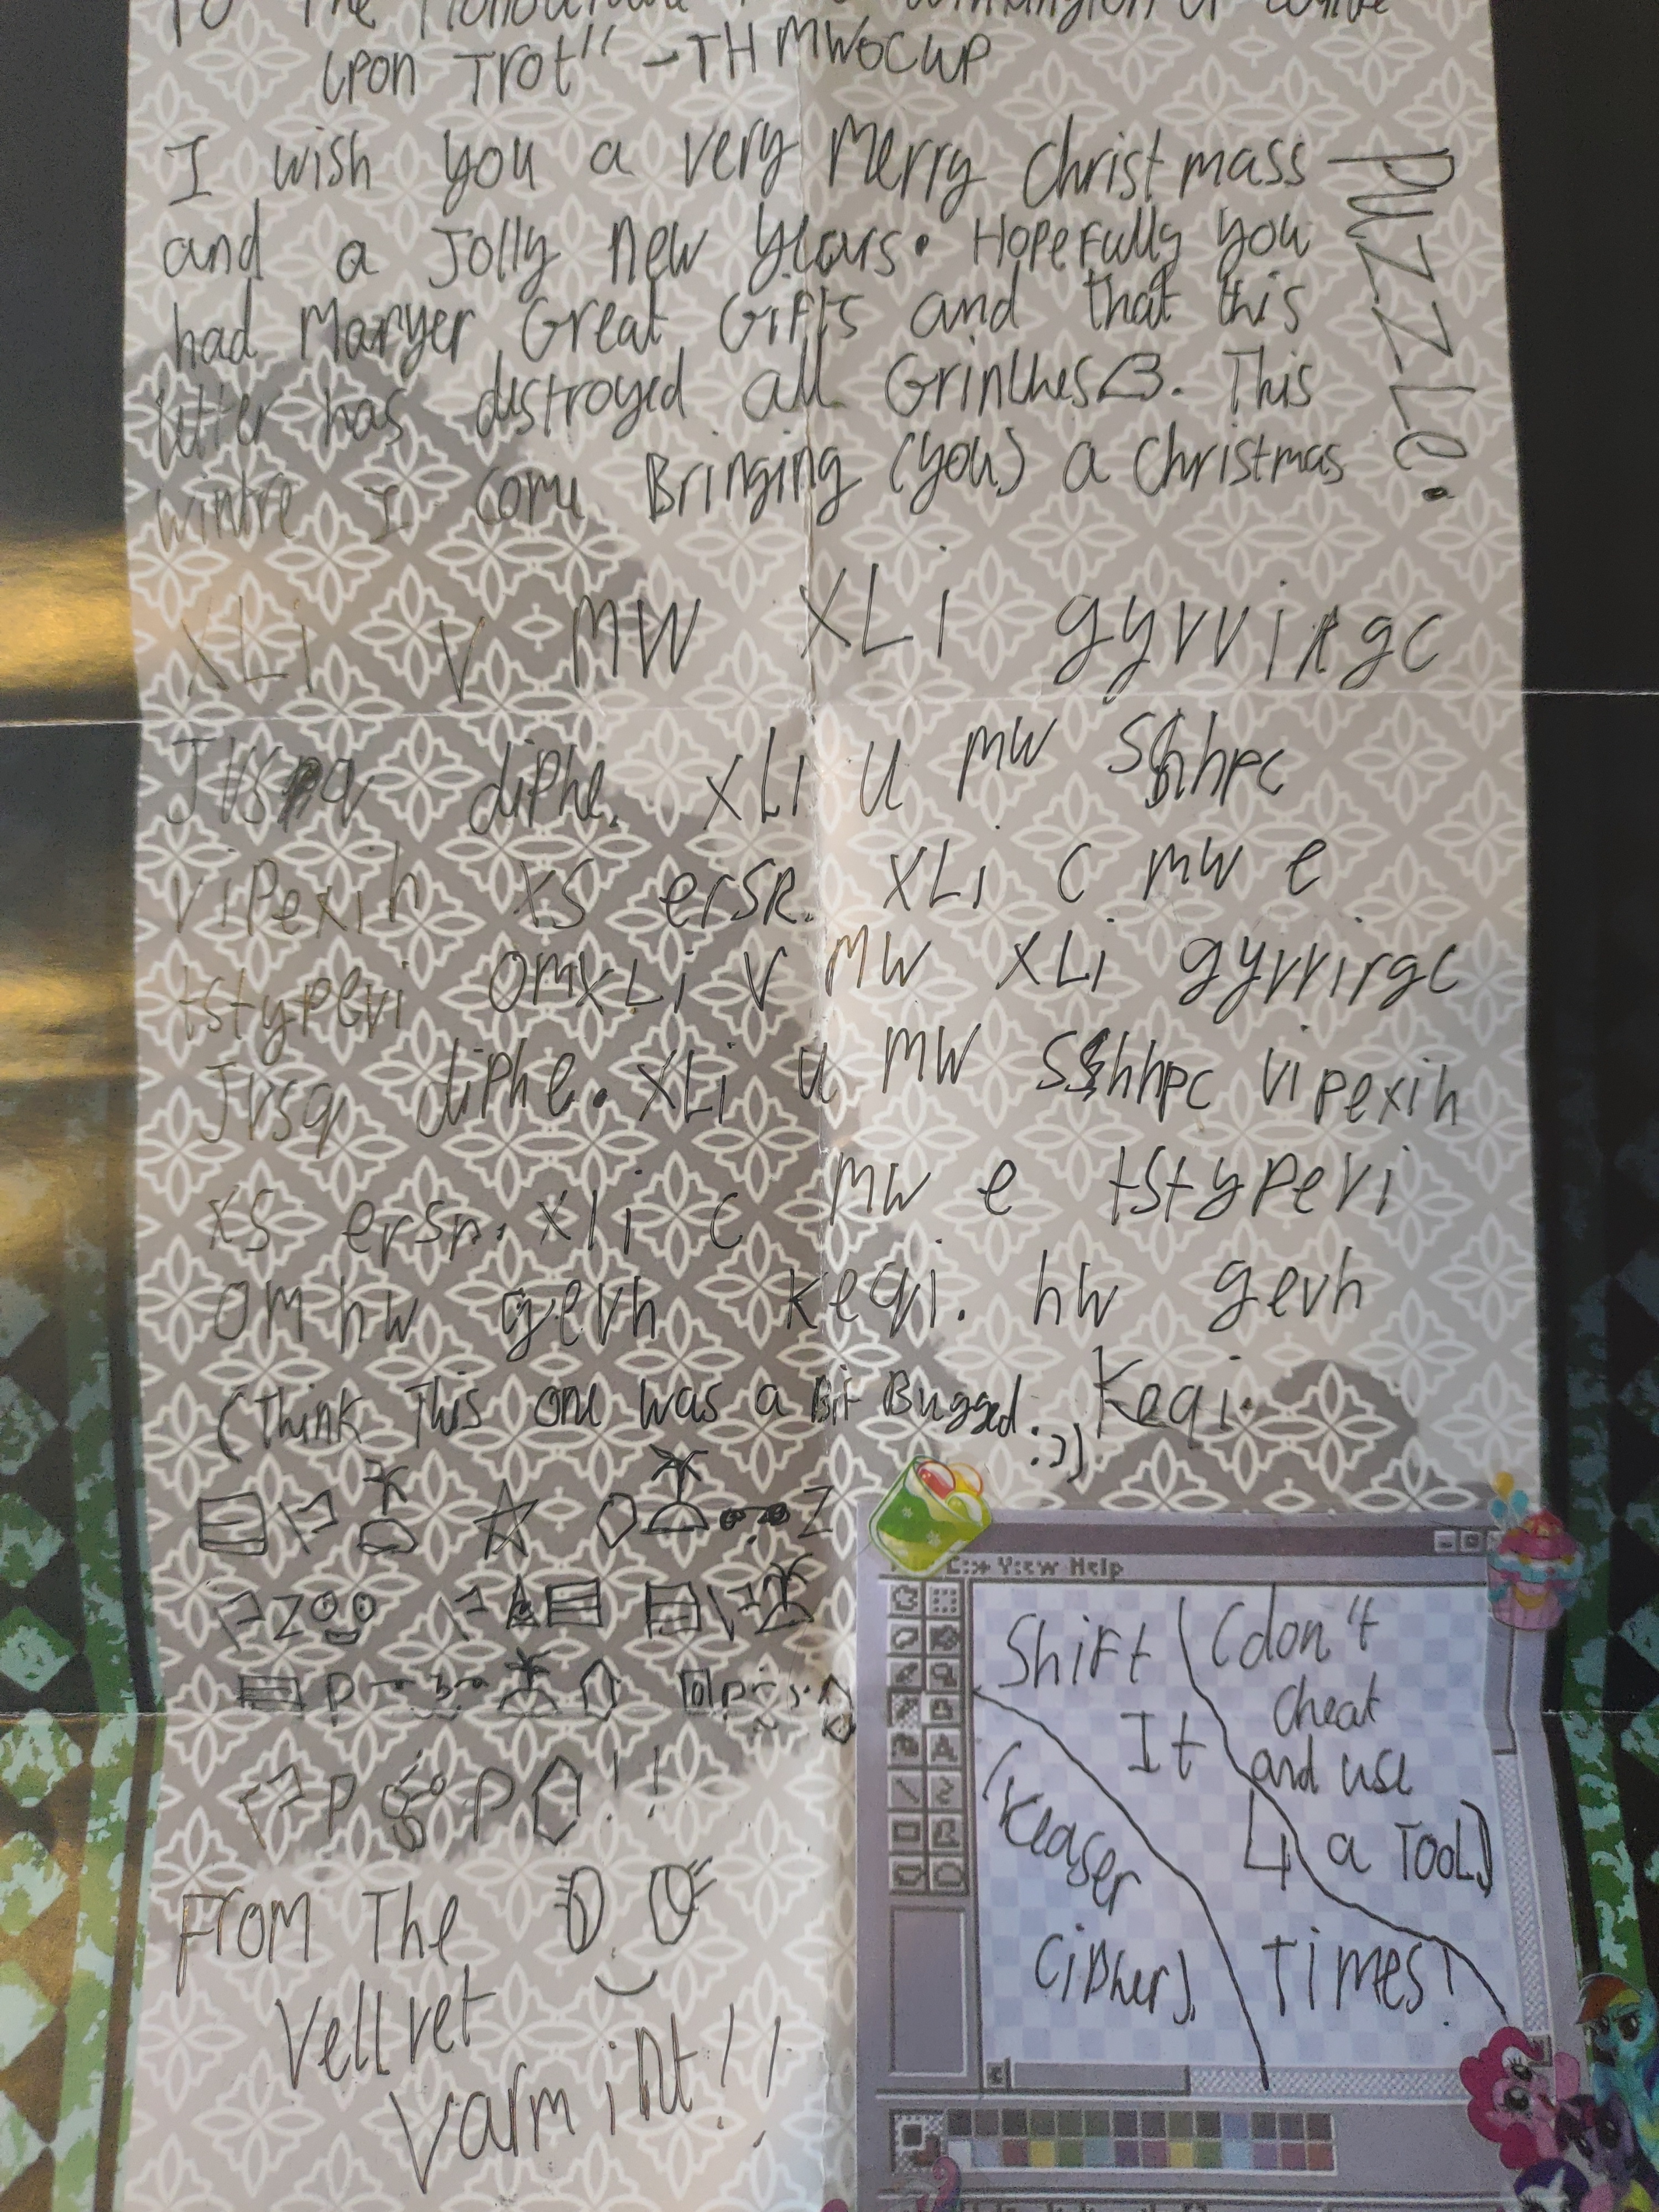 To The
upon Trot" -THMWOCUP
I wish you a very Merry Christmass
and a Jolly New Years. Hopefully you
had Great Gifts and that this
letter has destroyed all Grinches<3. This
wintre I come Bringing (you) a Christmas
PUZZLe.
XLi v MW XLi gyrvirgc
diphe. XLi u mw
vipexih xs ersr. XLi c mw e
tstypevi omXLi v MW XLi gyrrirgc
Jvsq diphe. XLi u MW vipexih
xs ersr. xli c mw e tstypevi
omhw gevh keqi. hw gevh
(Think This one was a Bit Bugged :3) Keqi.
View Help
Shift It 4 Times!
(don't cheat and use a TOOL)
(Keaser Cipher).
From The
Vellvet
Varmint!!